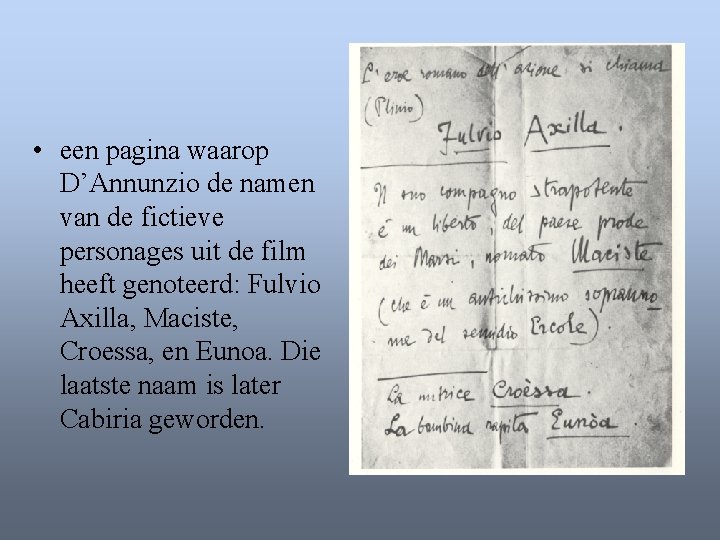 • een pagina waarop
D’Annunzio de namen
van de fictieve
personages uit de film
heeft genoteerd: Fulvio
Axilla, Maciste,
Croessa, en Eunoa. Die
laatste naam is later
Cabiria geworden.
L'eroe romano dell'azione si chiama
(Plinio)
Fulvio Axilla.
Il suo compagno strapotente
è un liberto, del paese prode
dei Marsi, nomato Maciste
(che è un antichissimo sopranno
me del semidio Ercole).
La nutrice Croèssa.
La bambina rapita Eunòa.